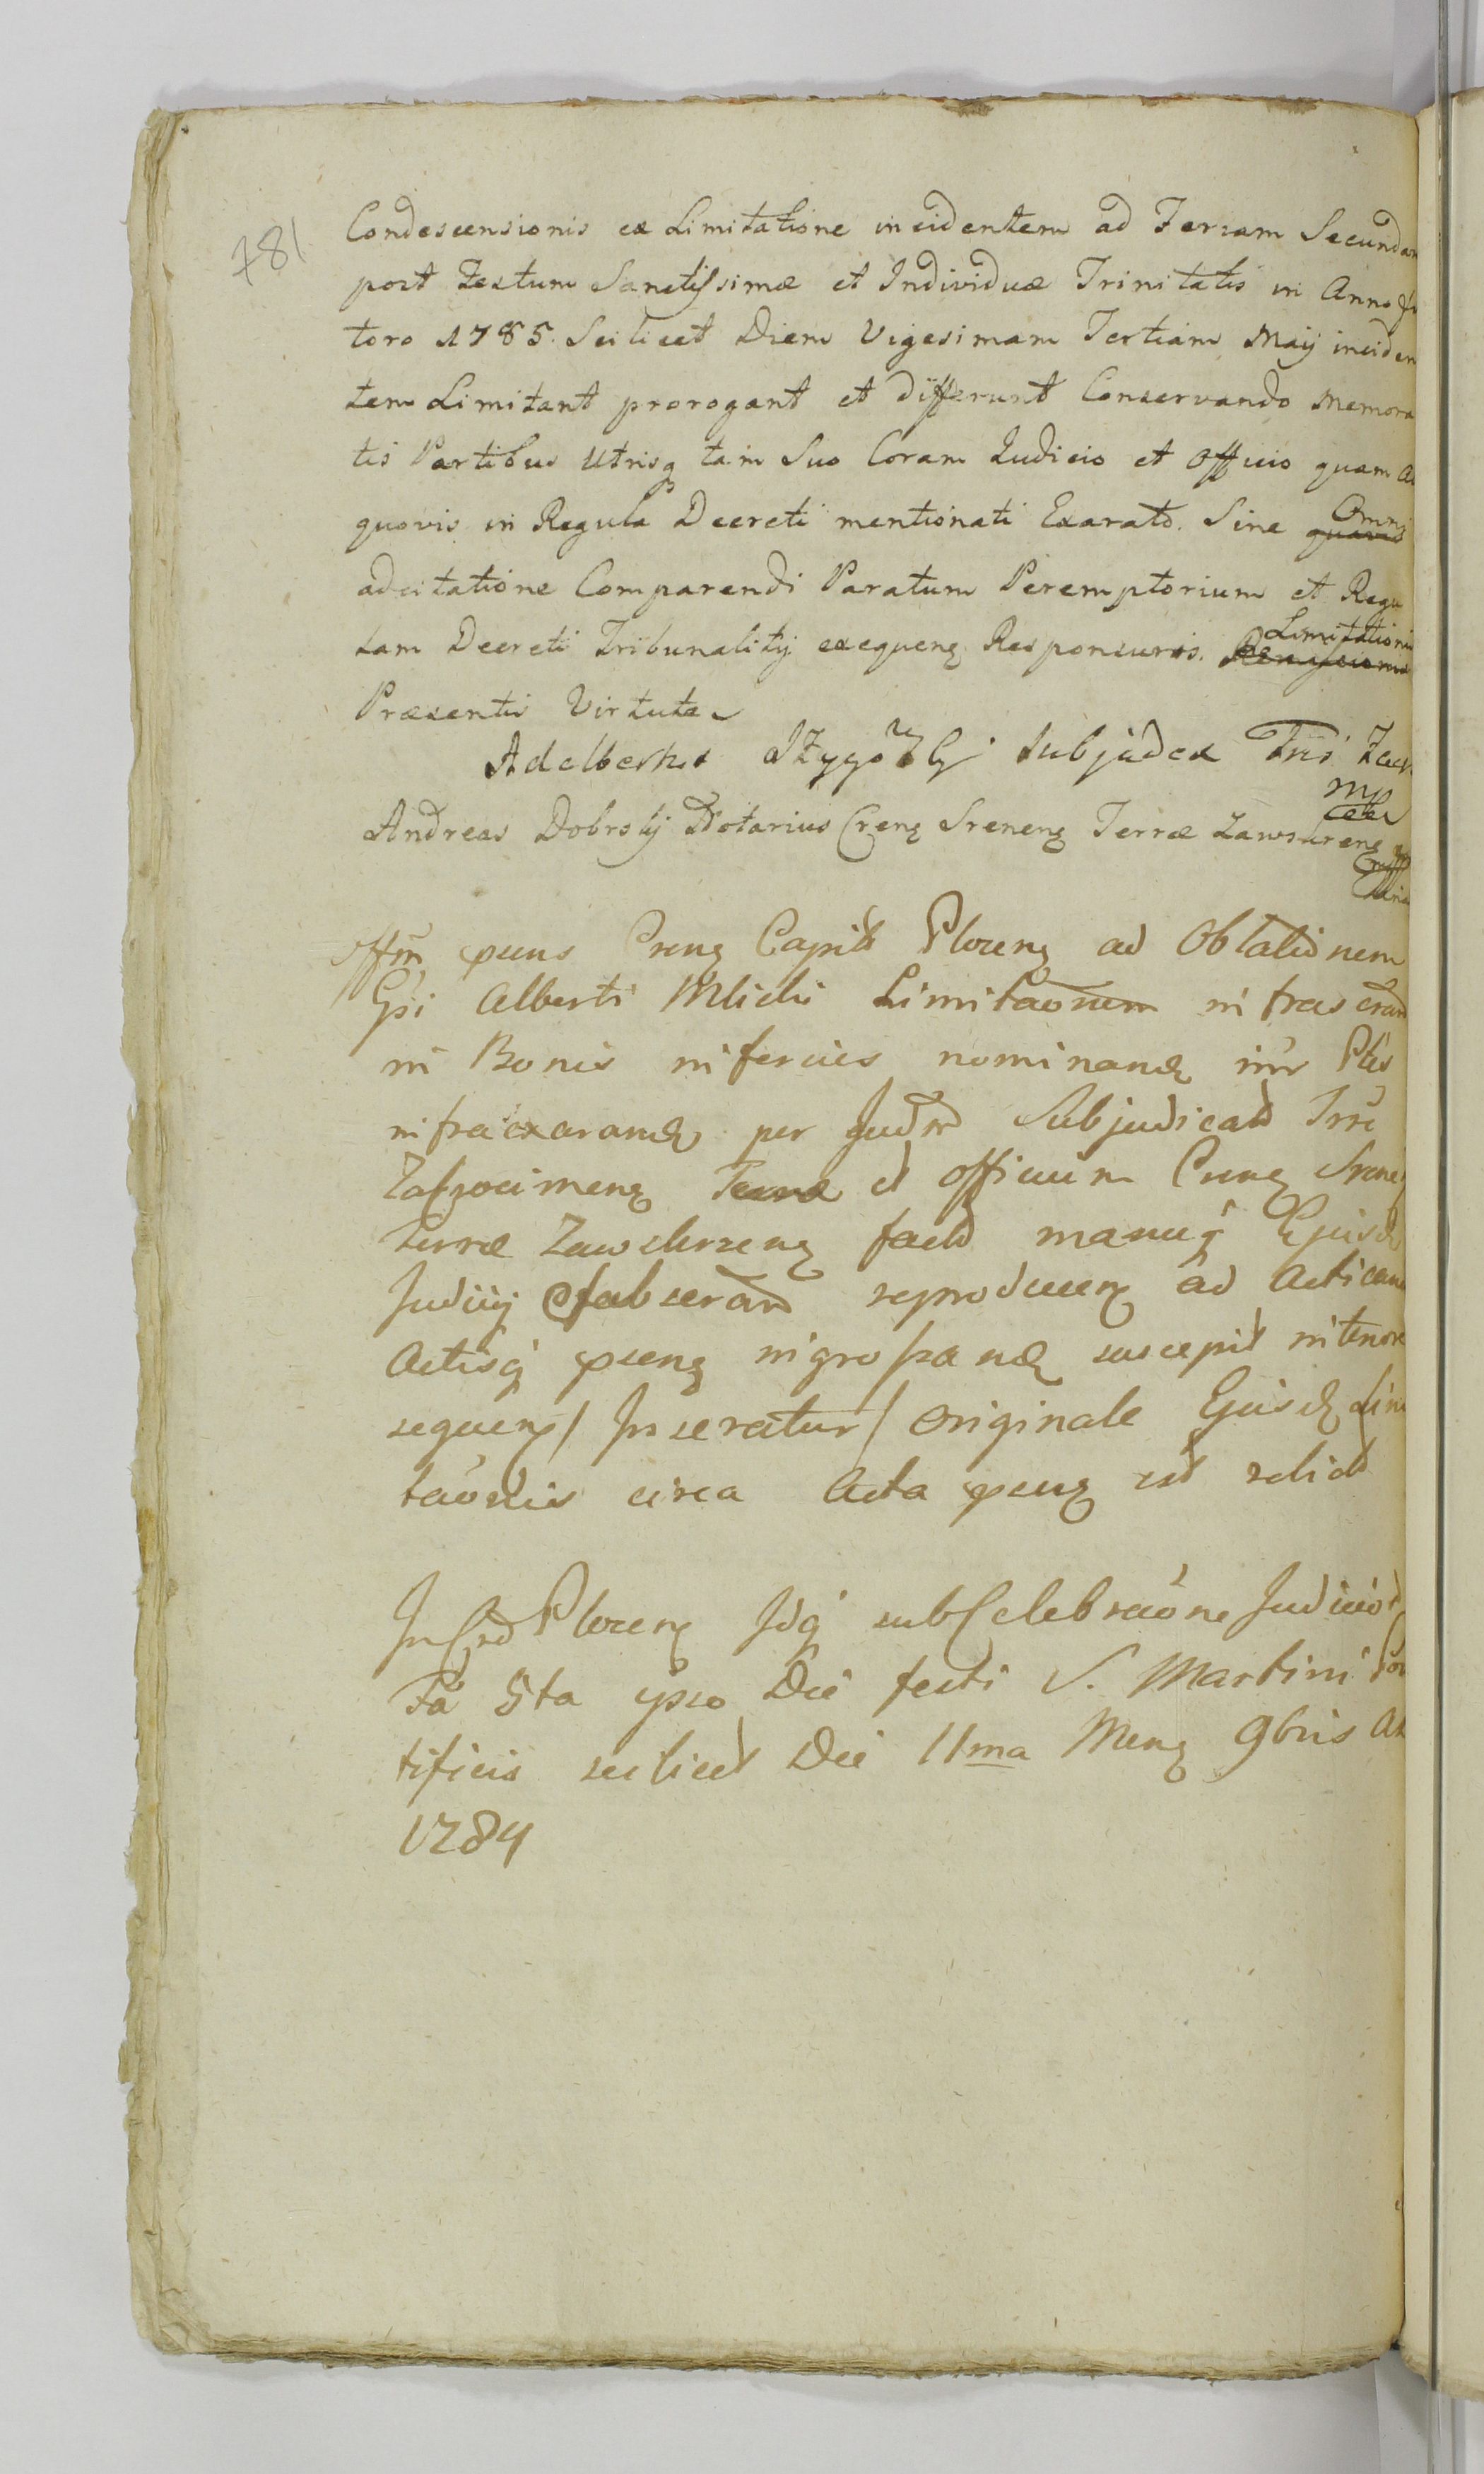 781
Condescensionis ex Limitatione incidentem ad Feriam Secundam
post Festum Sanctissimæ et Individuæ Trinitatis in Anno fu
turo 1785. Scilicet Diem Vigesimam Tertiam Maij inciden
tem Limitant prorogant et differunt Conservando memora
tis Partibus Utrisq tam Suo Coram Iudicio et Officio quam a
quovis in Regula Decreti mentionati Exarato. Sine quavis Omni
adcitatione Comparendi Paratum Peremptorium et Regu
lam Decreti Tribunalitij exequenꝫ Responsuris. Limitationis
Præsentis Virtute
Adelbertus Subjudex Tris Zawr
mp
Andreas Dobrsky Notarius Crenꝫ Srenenꝫ Terræ Zawskrenꝫ
Offm pnens Crenꝫ Capitt Plocenꝫ ad Oblationem
Gsi Alberti Mlicki Limitaonem infrascram
in Bonis inferius nominandꝫ intr Ptes
infra exarandꝫ per Judm Subjudicatt Trr
Zakrocimenꝫ Terræ et Officium Crenꝫ Srenenꝫ
Terræ Zawskrzenꝫ factt manuq Ejusdꝫ
Judicij subscram reproducenꝫ ad acticand
Actisq pnenꝫ ingrossandꝫ suscepit in tenore
sequenꝫ / Inseratur / Originale Ejusdꝫ Limi
taonis circa Acta pnenꝫ est relictt
In Crd Plocenꝫ Idq sub Celebraone Judicior
Fa 5ta ipso Die festi S. Martini Pon
tificis scilicet Die 11ma Menꝫ 9bris A
1784